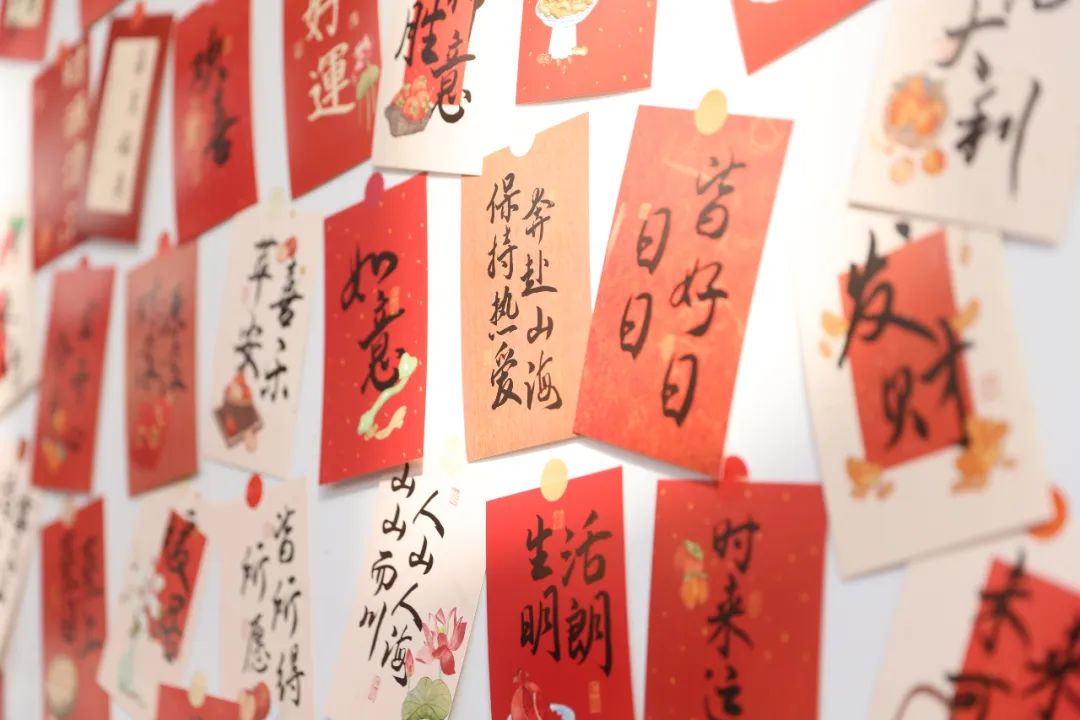 欢喜
好運
胜意
大利
平安
喜乐
如意
保持热爱
奔赴山海
日日
皆好日
发财
所愿
皆所得
山山而川
人山人海
生活
明朗
时来运
未来
可